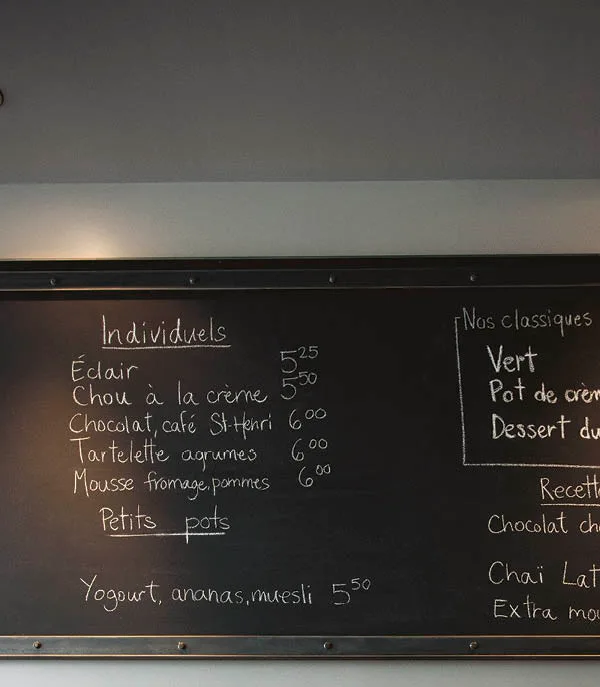 Individuels
Éclair 5.25
Chou à la crème 5.50
Chocolat, café St-Henri 6.00
Tartelette agrumes 6.00
Mousse fromage, pommes 6.00
Petits pots
Yogourt, ananas, muesli 5.50
Nos classiques
Vert
Pot de
Dessert du
Chocolat
Chaï
Extra